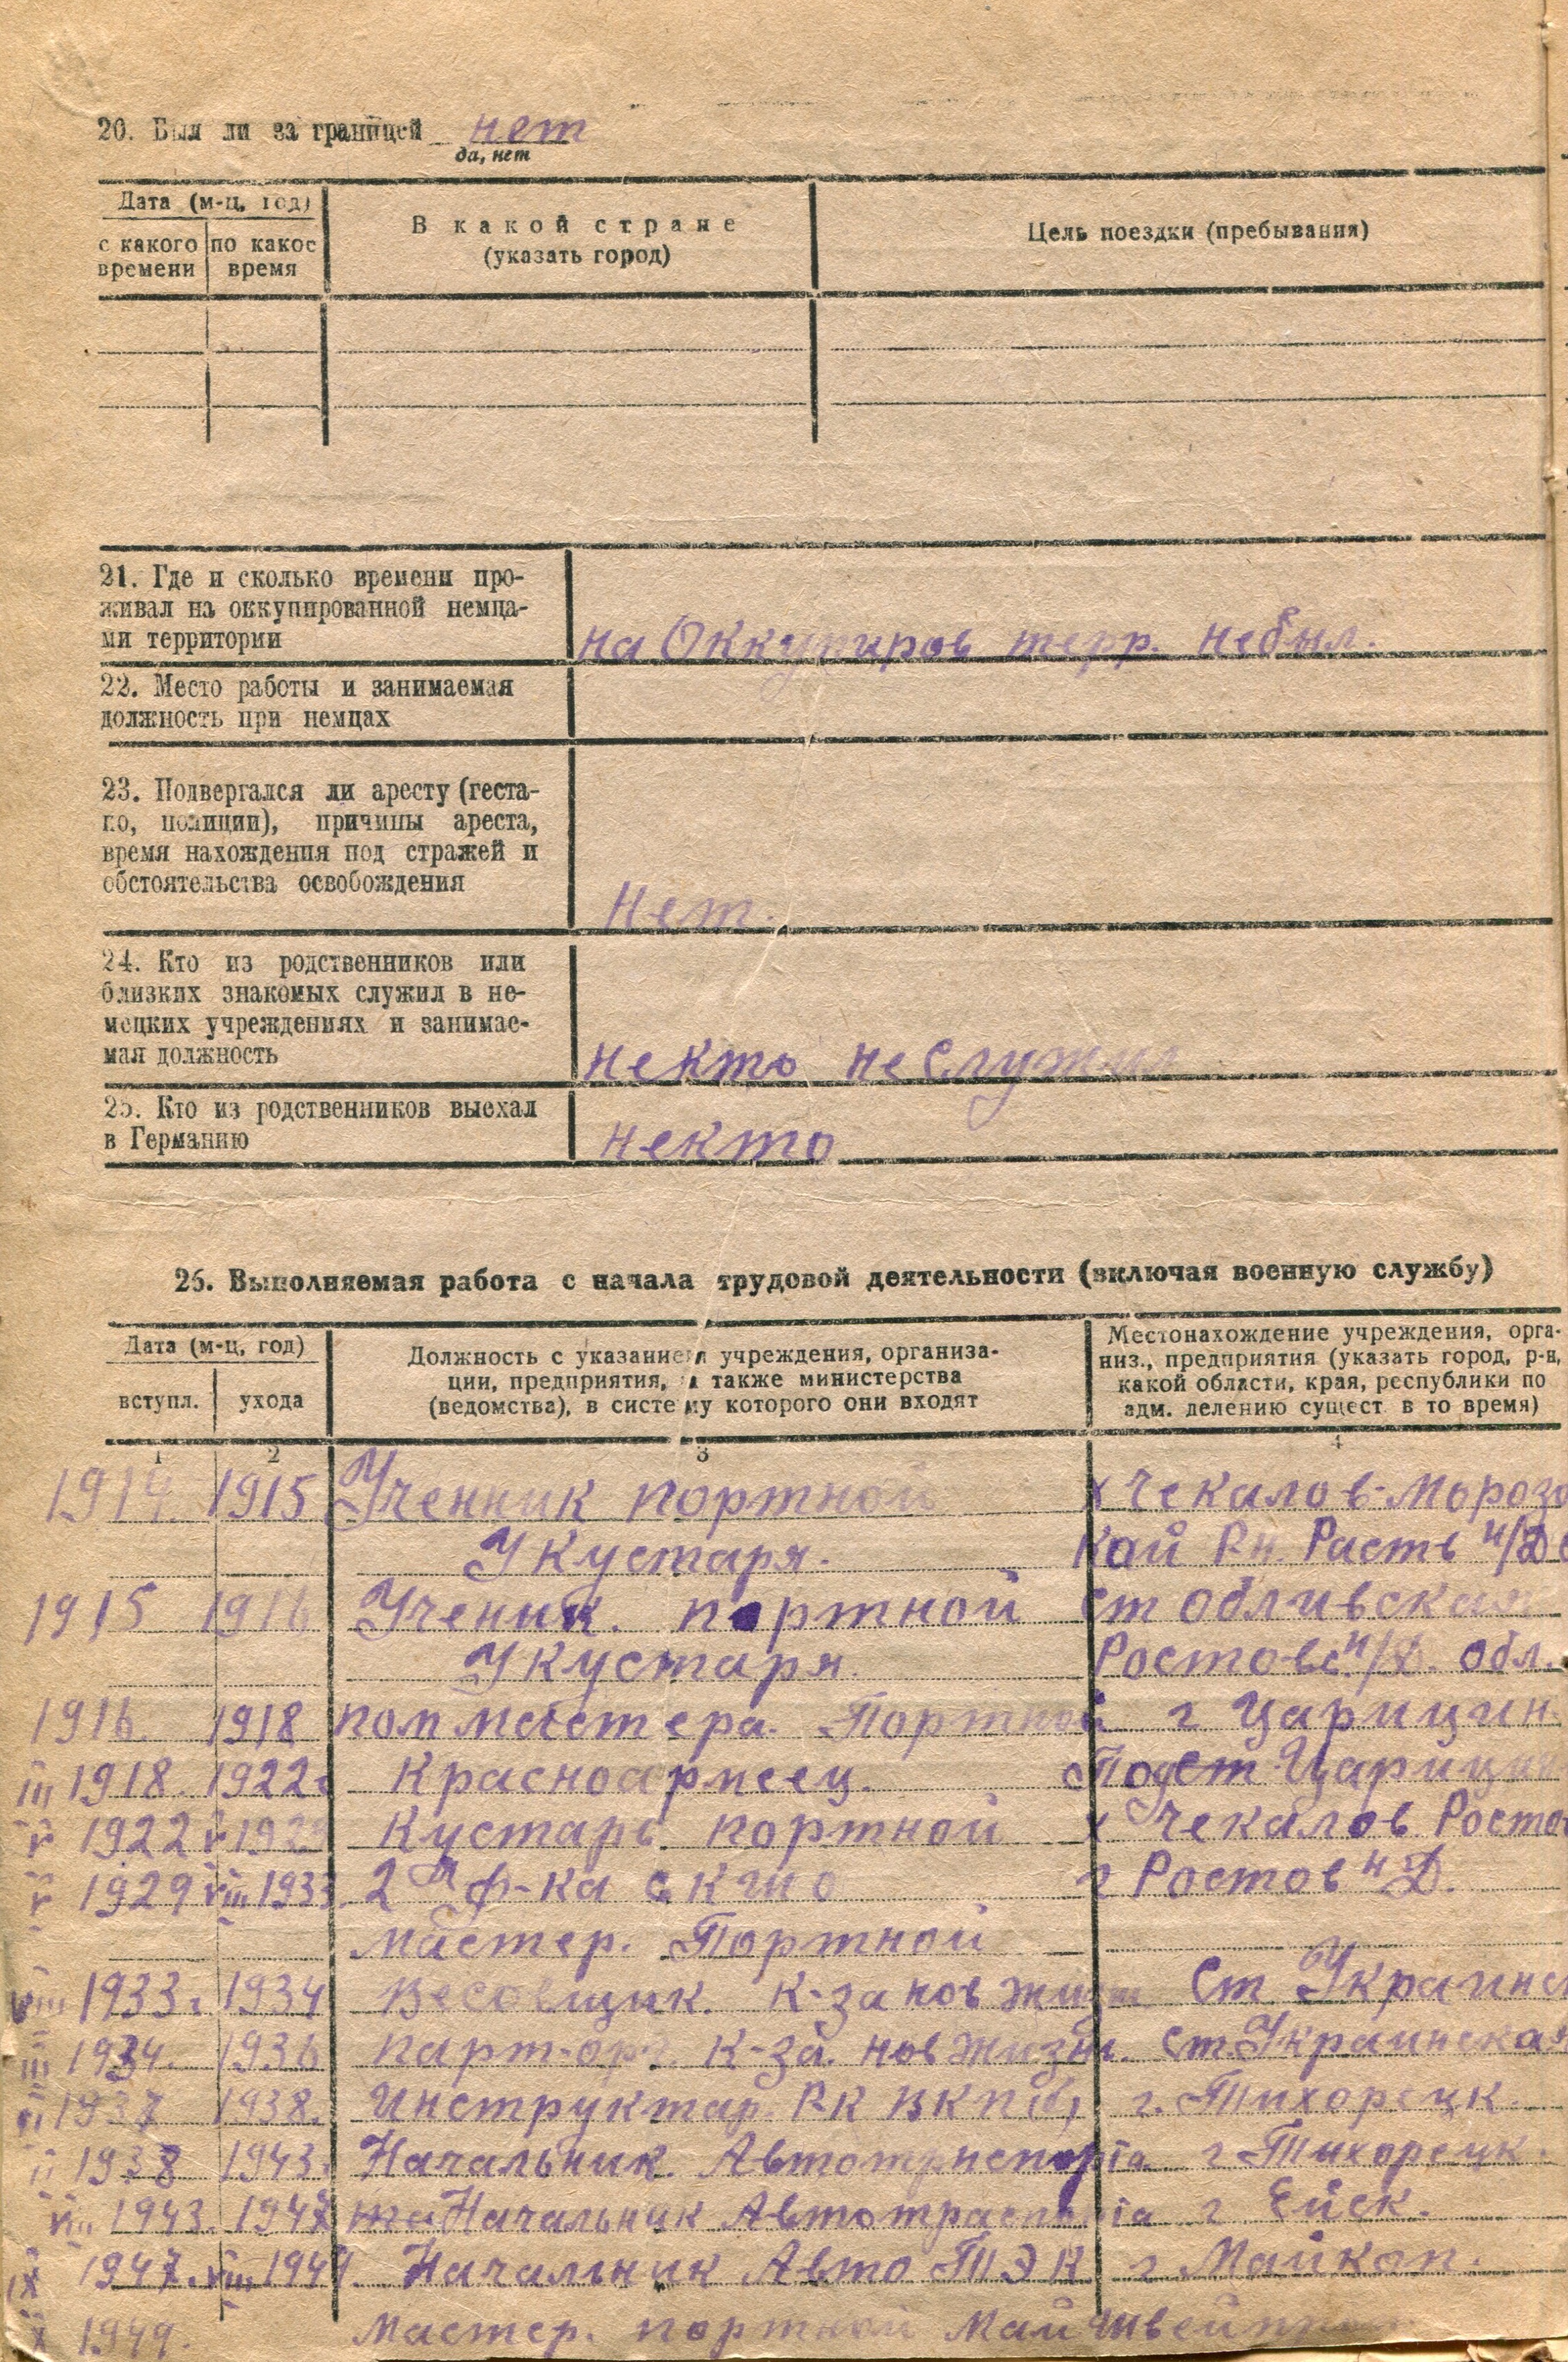 20. Был ли за границей нет
да, нет
Дата (м-ц, год)
с какого времени
по какое время
В какой стране
(указать город)
Цель поездки (пребывания)
21. Где и сколько времени про-
живал на оккупированной немца-
ми территории
на Оккупиров терр. небыл.
22. Место работы и занимаемая
должность при немцах
23. Подвергался ли аресту (геста-
по, полиции), причины ареста,
время нахождения под стражей и
обстоятельства освобождения
Нет.
24. Кто из родственников или
близких знакомых служил в не-
мецких учреждениях и занимае-
мая должность
некто неслужил
25. Кто из родственников выехал
в Германию
некто
26. Выполняемая работа с начала трудовой деятельности (включая военную службу)
Дата (м-ц, год)
вступл.
ухода
Должность с указанием учреждения, организа-
ции, предприятия, а также министерства
(ведомства), в систему которого они входят
Местонахождение учреждения, орга-
низ., предприятия (указать город, р-н,
какой области, края, республики по
адм. делению сущест. в то время)
1 2 3 4
1914. 1915 Ученник портной х Чекалов-Морозо
Укустаря. кой Рн. Расть н/Д
1915 1916 Ученик. портной ст Обливская
Укустаря. Ростовс. н/Д. обл.
1916. 1918 пом мастера. Портной г Царицин.
III 1918. 1922г Красноармеец. Подст Царицин
V 1922 V 1929 Кустарь портной х Чекалов Ростов
V 1929 VIII 1933. 2 я ф-ка г Ростов н Д.
мастер. Портной
VIII 1933г. 1934 Весовщик. к-за нов жизнь Ст Украинск
III 1934. 1936 парт-орг. к-за. нов жизнь. ст. Украинская
1937 1938. Инструктар РК ВКП(б) г. Тихорецк.
II 1938 1943. Начальник. Автотриспорта г Тихорецк.
VIII 1943. 1947 Начальник Автотраспорта г Ейск.
IX 1947. VIII 1949. Начальник Авто ТЭК г. Майкоп.
X 1949. Мастер. портной Май швейпром